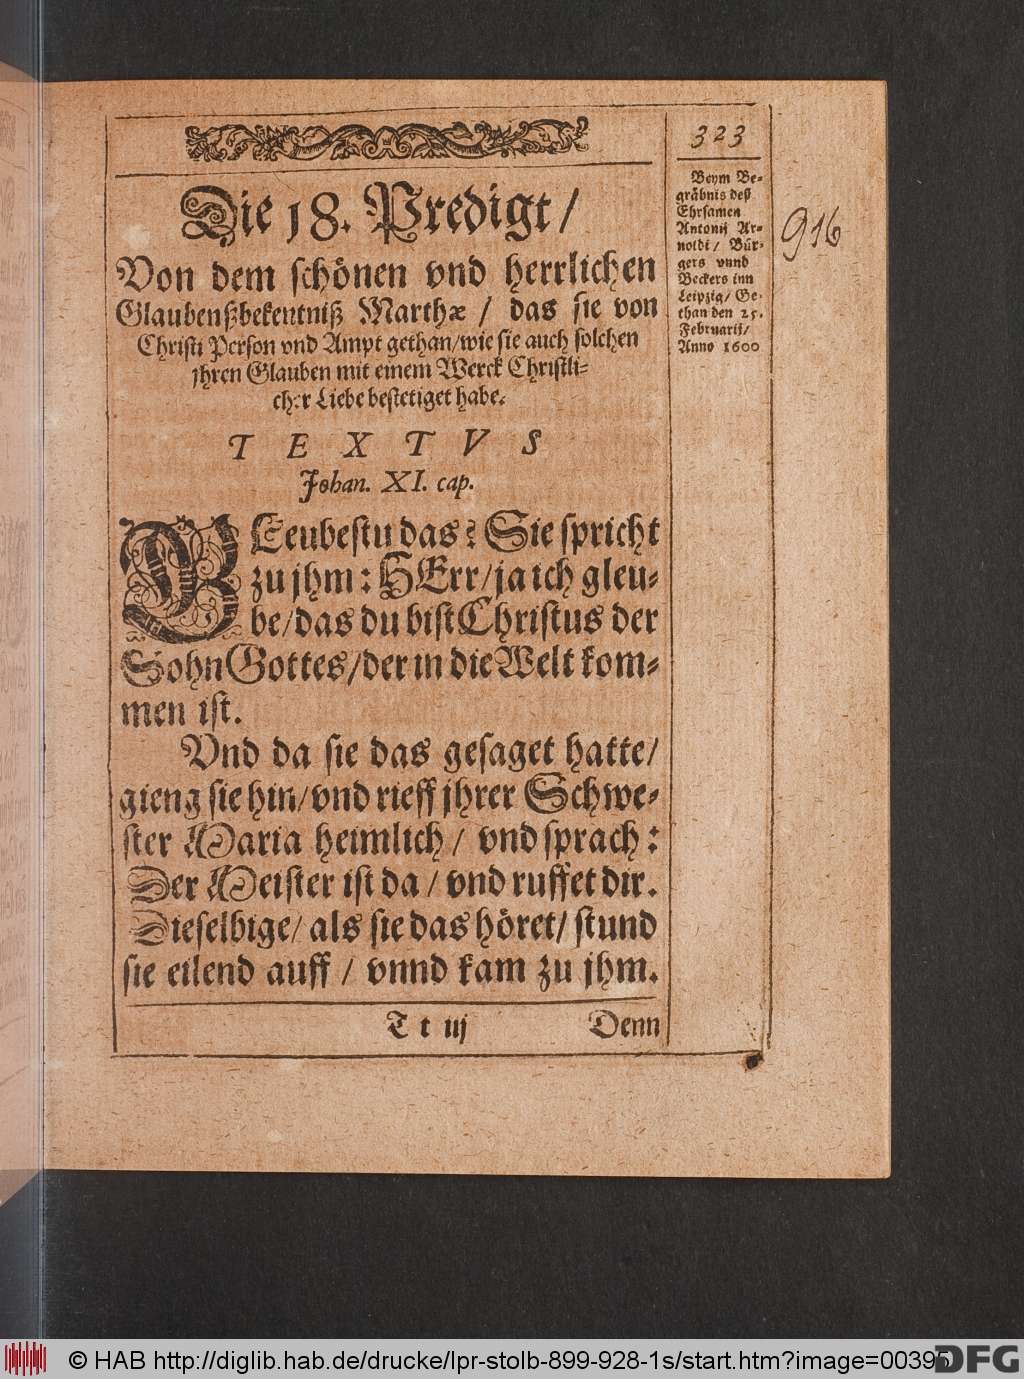 323
Die 18. Predigt /
Von dem schönen vnd herrlichen
Glaubenßbekentniß Marthæ / das sie von
Christi Person vnd Ampt gethan / wie sie auch solchen
jhren Glauben mit einem Werck Christli-
cher Liebe bestetiget habe.
TEXTVS
Johan. XI. cap.
GLeubestu das? Sie spricht
zu jhm: HErr / ja ich gleu-
be / das du bist Christus der
Sohn Gottes / der in die Welt kom-
men ist.
Vnd da sie das gesaget hatte /
gieng sie hin / vnd rieff jhrer Schwe-
ster Maria heimlich / vnd sprach:
Der Meister ist da / vnd ruffet dir.
Dieselbige / als sie das höret / stund
sie eilend auff / vnnd kam zu jhm.
T t iij Denn
Beym Be-
gräbnis deß
Ehrsamen
Antonij Ar-
noldi / Bür-
gers vnnd
Beckers inn
Leipzig / Ge-
than den 25.
Februarij /
Anno 1600
916
© HAB http://diglib.hab.de/drucke/lpr-stolb-899-928-1s/start.htm?image=00395
DFG